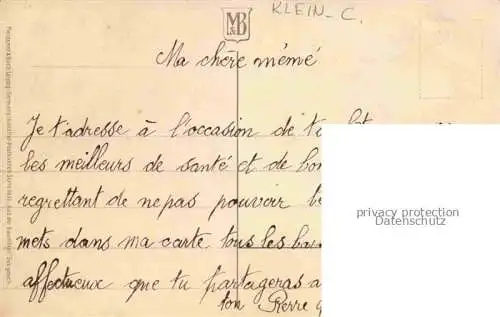 M&B
KLEIN_C.
Ma chère mémé
Je t'adresse à l'occasion de ta
les meilleurs de santé et de
regrettant de ne pas pouvoir
mets dans ma carte tous les
affectueux que tu partageras a
ton Pierre
privacy protection
Datenschutz